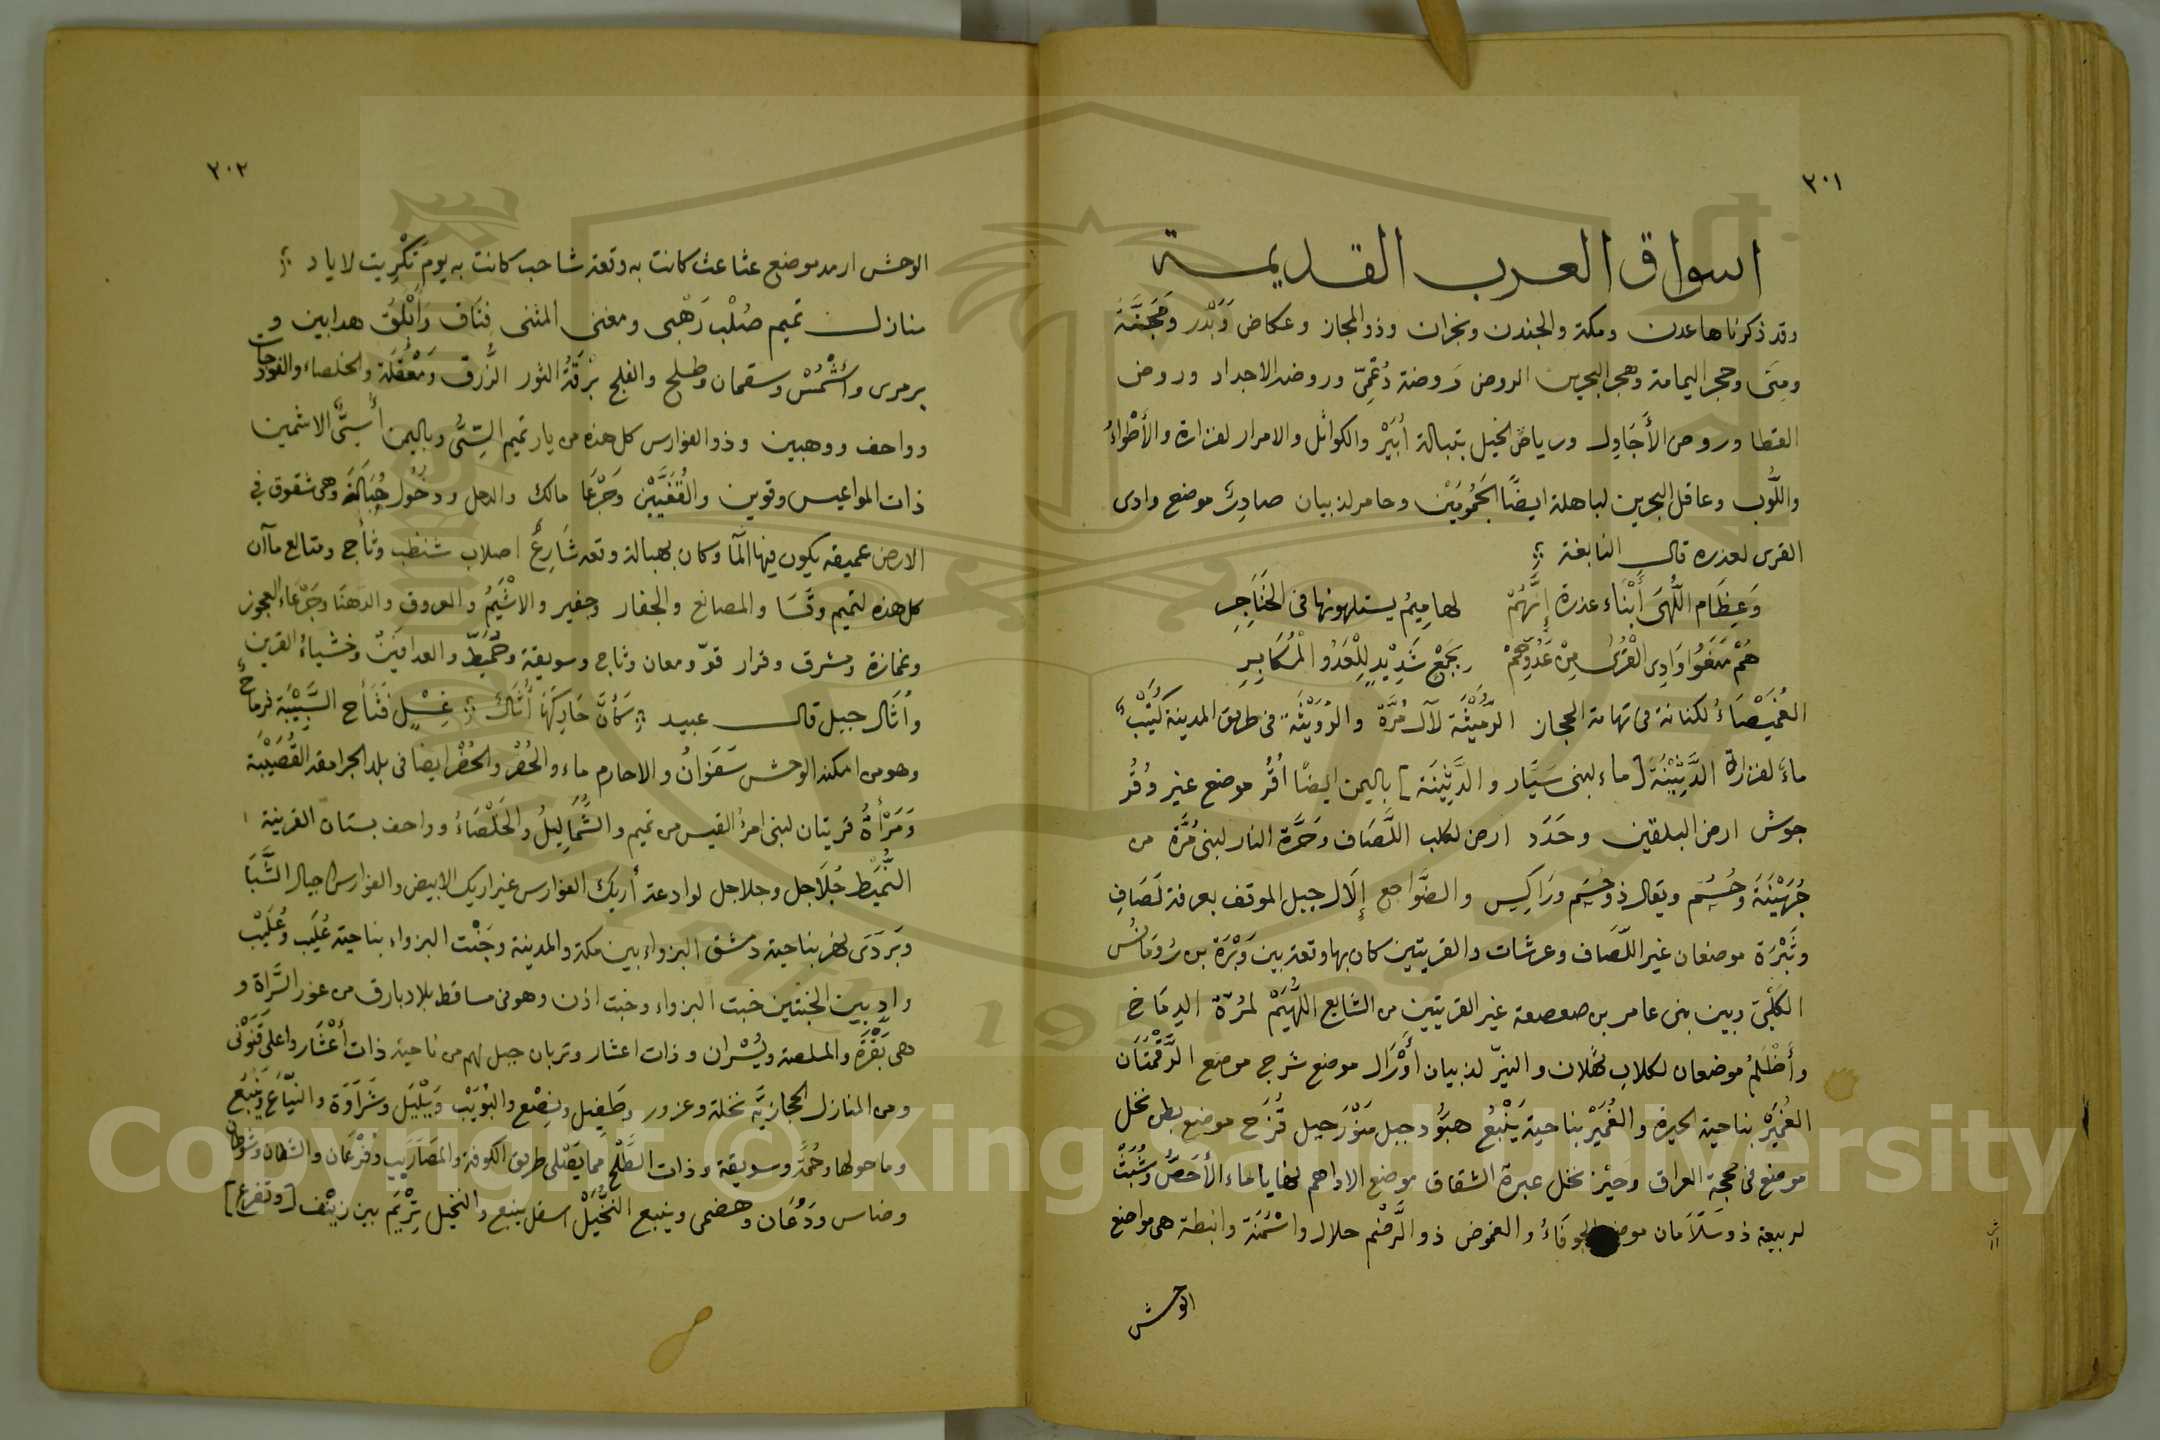 ٣٠١
اسواق العرب القديمة
وقد ذكرناها عدن ومكة والجندن ونجران وذو المجاز وعكاض وَبَدْر وَمَجَنَّةُ
ومِنَى وحجر اليمامة وهجر البحرين الروض رَوضة دُعْمِيّ وروضه الاجداد وروض
القطا وروض الأَجَاوِل ورياض الخيل بتبالة أُبَيْرُ والكواثل والامرار لفزارة والأَطْواءُ
واللُّوب وعاقل البحرين لباهلة ايضًا الجَمُومَيْن وحامر لذبيان صادِرُ موضع وادى
القرى لعذره قال النابغة
وَعِظَام اللُّهَى أَبْنَاء عذرة إِنَّهُمْ لهامِيمُ يستلهونها فى الحَنَاجِرِ
هُمْ مَنَعُوا وَادِى الْقُرَى مِنْ عَدُوِّهِمْ بجَمْعٍ شَدِيْدٍ لِلْعَدُوِّ الْمُكَابِرِ
الغُمَيْصَاءُ لكنانة فى تهامة الحجاز الرُّمَيْثَة لآل مُرَّة والرُوَيْثَة فى طريق المدينة كُتَيْبُ
ماءُ لفزارة الدَّثِيْنَةُ [ماء لبنى سَيَّار والدَّثِيْنَة] باليمن ايضًا أُقُرُ موضع غير وُقُر
جوش ارض البلقين وحَدَد ارض لكلب اللَّصَاف وحَرَّة النار لبنى مُرَّة من
جُهَيْنَة وحُسُم ويقال ذو حُسَم ورَاكِس والضَّواجع إِلَال جبل الموقف بعرفة لَصَافِ
وثَبْرَة موضعان غير اللّصَاف وعرشات والقريتين كان بها وقعة بين وَبْرَة بن رُومَانُس
الكَلْبىّ وبين بنى عامر بن صعصعة غير القريتين من الشايع اللُّهَيْمُ لمُرّة الدِمَاخ
وأَظْلَمُ موضعان لكلاب ثهلان والنيرّ لذبيان أَوْرَال موضع شرج موضع الرَّقْمَتَان
الغُمَيْرُ بناحية الحيرة والغُمَيْرُ بناحية يَنْبُعُ هبّود جبل مَنْوَر جبل قُزَح موضع بطن نخل
موضع فى محجّة العراق وحيْز نخل عبرة الشقاق موضع الاداهم لهفايا لماء الأَحَصُّ وشُبَيْثُ
لربيعة ذو سَلَامان موضع الجوفَاءُ والغموض ذو الرَّضْم حلال واسْنُمَة وانبطة هى مواضع
الوحش
٣٠٢
الوحش ارمد موضع عثاعث كانت به وقعة شاحب كانت به يوم تَكْرِيت لاياد
منازل تميم صُلْب رَهْبى ومغنى المثنى فِتَاق وَأَبْلَقُ هدابين و
برمرى وأَشْمُسْ وسقمان وطلح والفلج بْرقَةُ الثور الزُّرق ومَعْقُلَة والخلصاء والفودجات
وواحف ووهبين وذو الفوارس كل هذه من ديار تميم السِّىُّ وباليمن أُسَيٌّ الاثمين
ذات المواعيس وقوين والقُفَيَّيْن وجَرْعَا مالك والدحل ودخول حُبَالة وهى شقوق فى
الارض عميقه يكون فيها المآ وكان بهبالة وقعه شَارِعُ اصلاب شنظب وثأج ومتالع مآان
كل هذه لتميم وقَسَا والمصانع والجفار وجفير والاشْيَمُ والعروق والدهنا وجَرْعَاء العجوز
وغمازة ومشرق وقرار قوّ ومعان وثاج وسويقة وحُمَيطّ والعدافينُ وخشباءُ القرين
وأُثَال جبل قال عبيد كَأَنَّ حَارِكَهَا أُثَالُ غِسْلٍ فَثَأْج السَّبِيْبَة فرماح
وهو من امكنه الوحش سَفَوانُ والاحارم ماء والحُفَرُ والحُفَرُ ايضا فى بلد الجرامقه القُصَيْبَة
وَمَرْأَةُ قريتان لبنى امرؤ القيس من تميم والشَّمَالِيلُ والخَلْصَاءُ وواحف بستان القرينة
النُّمَيْط جُلَاجل وجلاجل لوادعة أريك الفوارس غير اريك الابيض والفوارس اجبال الشَّبَا
وبَرَدَى نهر بناحية دمشق البزواء بين مكة والمدينة وخَبْت البزواء بناحية عُلَيَب وعُلَيْب
واد بين الخبتين خبت البزواء وخبت اذن وهو فى مساقط بلاد بارق من غور السَّراة و
هى بَقْرَة والملصة ويُسْران وذات اعشار وتربان جبل لهم من ناحية ذات أَعْشَار واعلى قَنَوْنى
ومن المنازل الحجازيَّة نخلة وعزور وطَفيل وبِضْع والبُوَيْب ويَلْيَل وشَرَاوَة والنيَّاع وينبُع
وما حولها وحُمَةُ وسويقة وذات الطَّلْح مما يَصْلى طريق الكوفة والمضَارِيب وفُرْعَان والشطان وشوطان
وضاس ودُعَان وهضمى وينبع النَّخْيل اسفل ينبع والنخيل بِتْرِيَم بين زبنف [وتفرع]